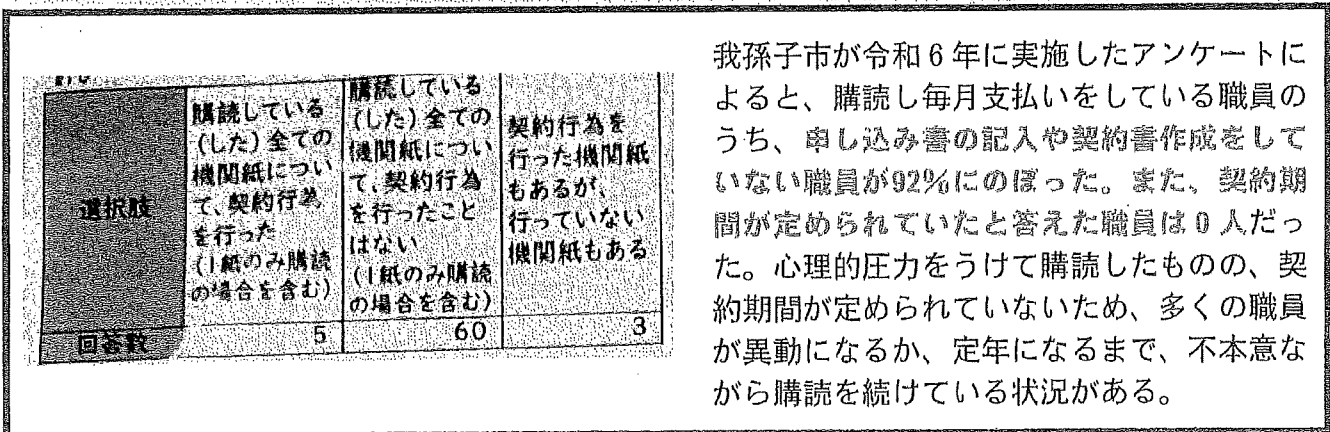 選択肢
購読している
(した)全ての
機関紙につい
て、契約行為
を行った
(1紙のみ購読
の場合を含む)
購読している
(した)全ての
機関紙につい
て、契約行為
を行ったこと
はない
(1紙のみ購読
の場合を含む)
契約行為を
行った機関紙
もあるが、
行っていない
機関紙もある
回答数
5
60
3
我孫子市が令和6年に実施したアンケートに
よると、購読し毎月支払いをしている職員の
うち、申し込み書の記入や契約書作成をして
いない職員が92%にのぼった。また、契約期
間が定められていたと答えた職員は0人だっ
た。心理的圧力をうけて購読したものの、契
約期間が定められていないため、多くの職員
が異動になるか、定年になるまで、不本意な
がら購読を続けている状況がある。